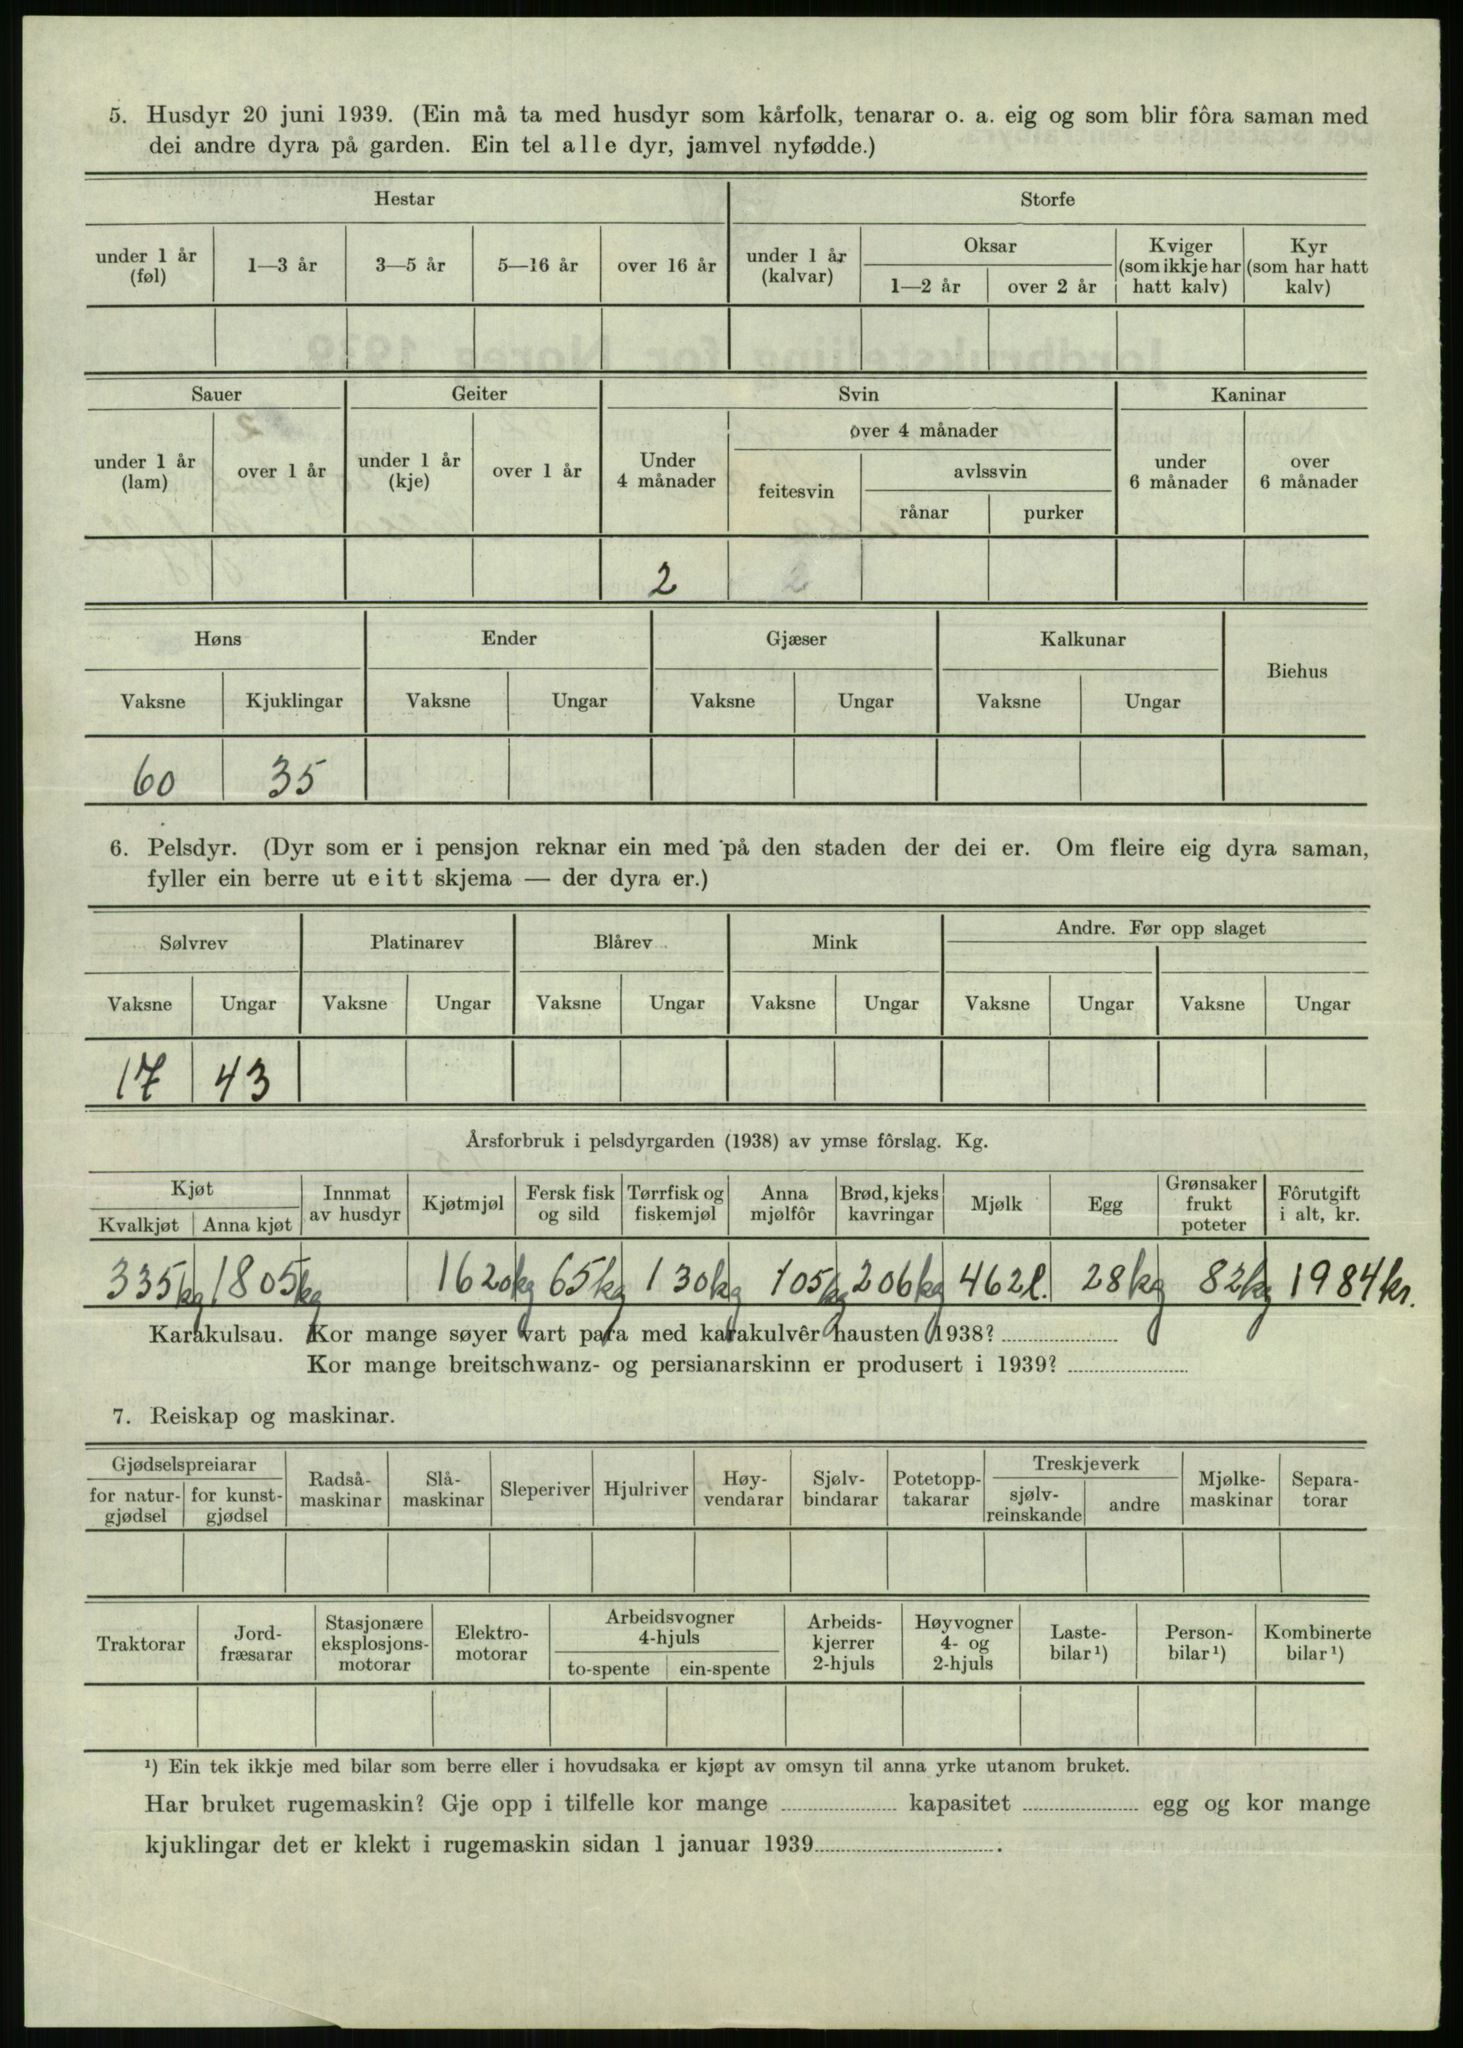 5. Husdyr 20 juni 1939. (Ein må ta med husdyr som kårfolk, tenarar o. a. eig og som blir fôra saman med
dei andre dyra på garden. Ein tel alle dyr, jamvel nyfødde.)
Hestar Storfe
under 1 år (føl) 1—3 år 3—5 år 5—16 år over 16 år under 1 år (kalvar) Oksar Kviger (som ikkje har hatt kalv) Kyr (som har hatt kalv)
1—2 år over 2 år
Sauer Geiter Svin Kaninar
under 1 år (lam) over 1 år under 1 år (kje) over 1 år Under 4 månader over 4 månader under 6 månader over 6 månader
feitesvin avlssvin
rånar purker
2
Høns Ender Gjæser Kalkunar Biehus
Vaksne Kjuklingar Vaksne Ungar Vaksne Ungar Vaksne Ungar
60 35
6. Pelsdyr. (Dyr som er i pensjon reknar ein med på den staden der dei er. Om fleire eig dyra saman,
fyller ein berre ut eitt skjema — der dyra er.)
Sølvrev Platinarev Blårev Mink Andre. Før opp slaget
Vaksne Ungar Vaksne Ungar Vaksne Ungar Vaksne Ungar Vaksne Ungar Vaksne Ungar
17 43
Årsforbruk i pelsdyrgarden (1938) av ymse fôrslag. Kg.
Kjøt Innmat av husdyr Kjøtmjøl Fersk fisk og sild Tørrfisk og fiskemjøl Anna mjølfôr Brød, kjeks kavringar Mjølk Egg Grønsaker frukt poteter Fôrutgift i alt, kr.
Kvalkjøt Anna kjøt
335kg 1805kg 1620kg 65kg 130kg 105kg 206kg 462l. 28kg 82kg 1984kr.
Karakulsau. Kor mange søyer vart para med karakulvêr hausten 1938?
Kor mange breitschwanz- og persianarskinn er produsert i 1939?
7. Reiskap og maskinar.
Gjødselspreiarar Radså-maskinar Slå-maskinar Sleperiver Hjulriver Høy-vendarar Sjølv-bindarar Potetopp-takarar Treskjeverk Mjølke-maskinar Separa-torar
for natur-gjødsel for kunst-gjødsel sjølv-reinskande andre
Traktorar Jord-fræsarar Stasjonære eksplosjons-motorar Elektro-motorar Arbeidsvogner 4-hjuls Arbeids-kjerrer 2-hjuls Høyvogner 4- og 2-hjuls Laste-bilar¹) Person-bilar¹) Kombinerte bilar¹)
to-spente ein-spente
¹) Ein tek ikkje med bilar som berre eller i hovudsaka er kjøpt av omsyn til anna yrke utanom bruket.
Har bruket rugemaskin? Gje opp i tilfelle kor mange kapasitet egg og kor mange
kjuklingar det er klekt i rugemaskin sidan 1 januar 1939.